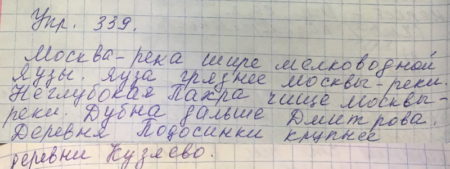 Упр. 339.
Москва-река шире мелководной
Яузы. Яуза грязнее Москвы-реки.
Неглубокая Пахра чище Москвы-
реки. Дубна дальше Дмитрова.
Деревня Подосинки крупнее
деревни Кузяево.